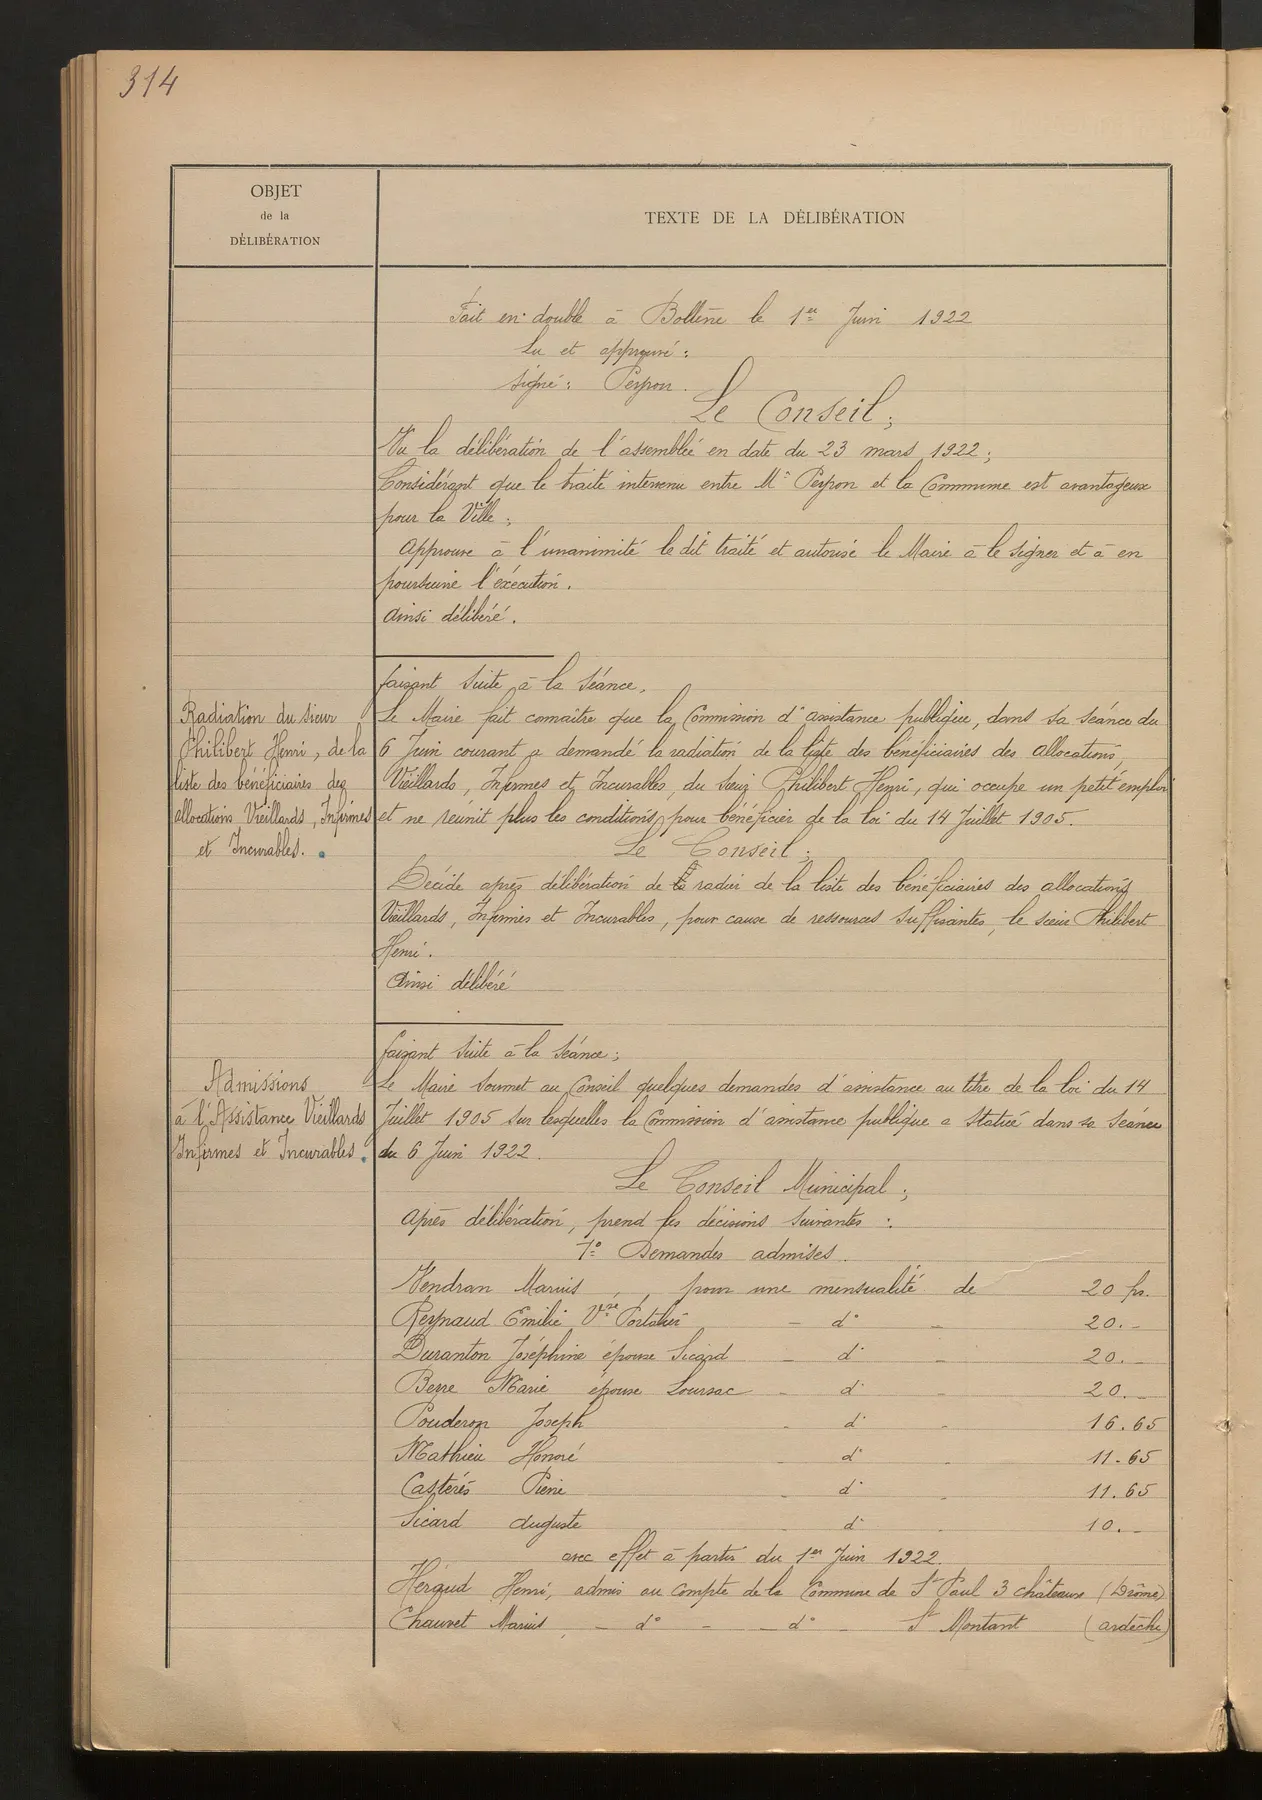 314
OBJET
de la
DÉLIBÉRATION
TEXTE DE LA DÉLIBÉRATION
Fait en double à Bollène le 1er Juin 1922
Lu et approuvé :
signé : Peyron.
Le Conseil ;
Vu la délibération de l'assemblée en date du 23 mars 1922 ;
Considérant que le traité intervenu entre Mr Peyron et la Commune est avantageux
pour la Ville ;
approuve à l'unanimité le dit traité et autorise le Maire à le signer et à en
poursuivre l'exécution.
ainsi délibéré.
faisant suite à la séance,
Radiation du sieur
Philibert Henri, de la
liste des bénéficiaires des
allocations Vieillards, Infirmes
et Incurables.
Le Maire fait connaître que la Commission d'assistance publique, dans sa séance du
6 Juin courant a demandé la radiation de la liste des bénéficiaires des allocations,
Vieillards, Infirmes et Incurables, du sieur Philibert Henri, qui occupe un petit emploi
et ne réunit plus les conditions pour bénéficier de la loi du 14 Juillet 1905.
Le Conseil ;
Décide après délibération de radier de la liste des bénéficiaires des allocations
Vieillards, Infirmes et Incurables, pour cause de ressources suffisantes, le sieur Philibert
Henri.
Ainsi délibéré
faisant suite à la séance ;
Admissions
à l'Assistance Vieillards
Infirmes et Incurables.
Le Maire soumet au Conseil quelques demandes d'assistance au titre de la loi du 14
Juillet 1905 sur lesquelles la Commission d'assistance publique a statué dans sa séance
du 6 Juin 1922.
Le Conseil Municipal ;
après délibération, prend les décisions suivantes :
1° Demandes admises.
Vendran Marius, pour une mensualité de 20 frs.
Reynaud Emilie Vve Portalier - d° - 20. -
Duranton Joséphine épouse Sicard - d° - 20. -
Berre Marie épouse Loursac - d° - 20. -
Pouderon Joseph - d° - 16.65
Mathieu Honoré - d° - 11.65
Castérès Pierre - d° - 11.65
Sicard Auguste - d° - 10. -
avec effet à partir du 1er Juin 1922.
Héraud Henri, admis au compte de la Commune de St Paul 3 châteaux (Drôme)
Chauvet Marius - d° - - d° - St Montant (ardèche)